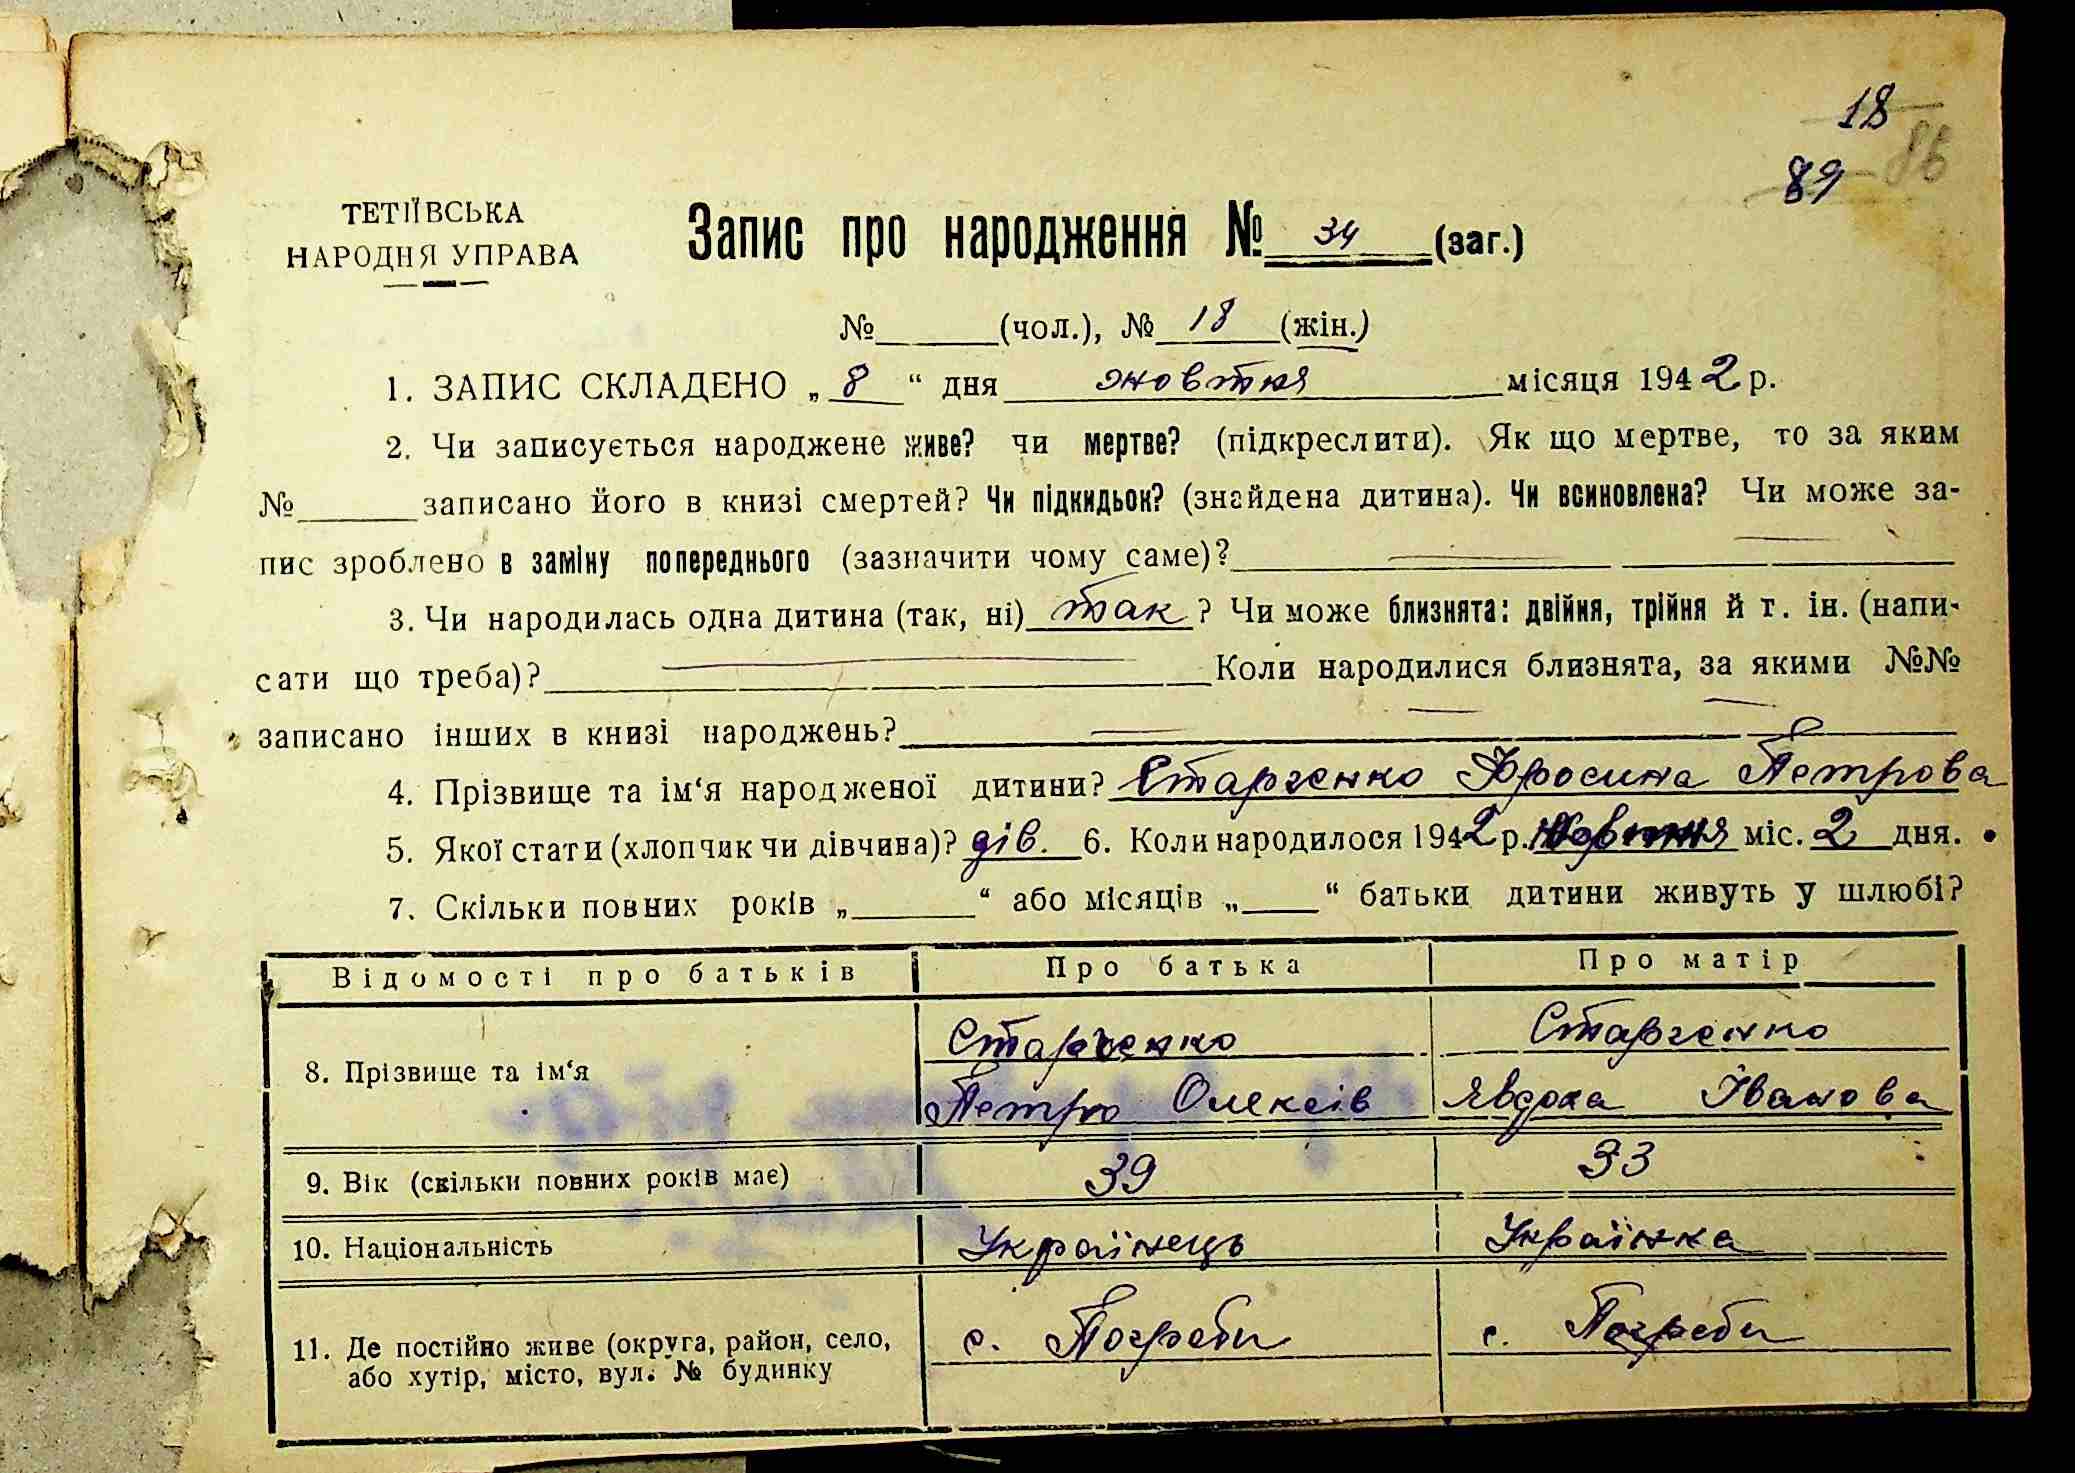 18
86
89
ТЕТІЇВСЬКА
НАРОДНЯ УПРАВА
Запис про народження № 34 (заг.)
№______(чол.), № 18 (жін.)
1. ЗАПИС СКЛАДЕНО „ 8 “ дня жовтня місяця 1942 р.
2. Чи записується народжене живе? чи мертве? (підкреслити). Як що мертве, то за яким
№______записано його в книзі смертей? Чи підкидьок? (знайдена дитина). Чи всиновлена? Чи може за-
пис зроблено в заміну попереднього (зазначити чому саме)?
3. Чи народилась одна дитина (так, ні) так ? Чи може близнята: двійня, трійня й т. ін. (напи-
сати що треба)? Коли народилися близнята, за якими №№
записано інших в книзі народжень?
4. Прізвище та ім‘я народженої дитини? Старченко Фросина Петрова
5. Якої стати (хлопчик чи дівчина)? дів. 6. Коли народилось 1942 р. Жовтня міс. 2 дня.
7. Скільки повних років „______“ або місяців „____“ батьки дитини живуть у шлюбі?
Відомості про батьків Про батька Про матір
8. Прізвище та ім‘я Старченко Старченко
Петро Олексів Явдоха Іванова
9. Вік (скільки повних років має) 39 33
10. Національність Українець Українка
11. Де постійно живе (округа, район, село, с. Погреби с. Погреби
або хутір, місто, вул. № будинку